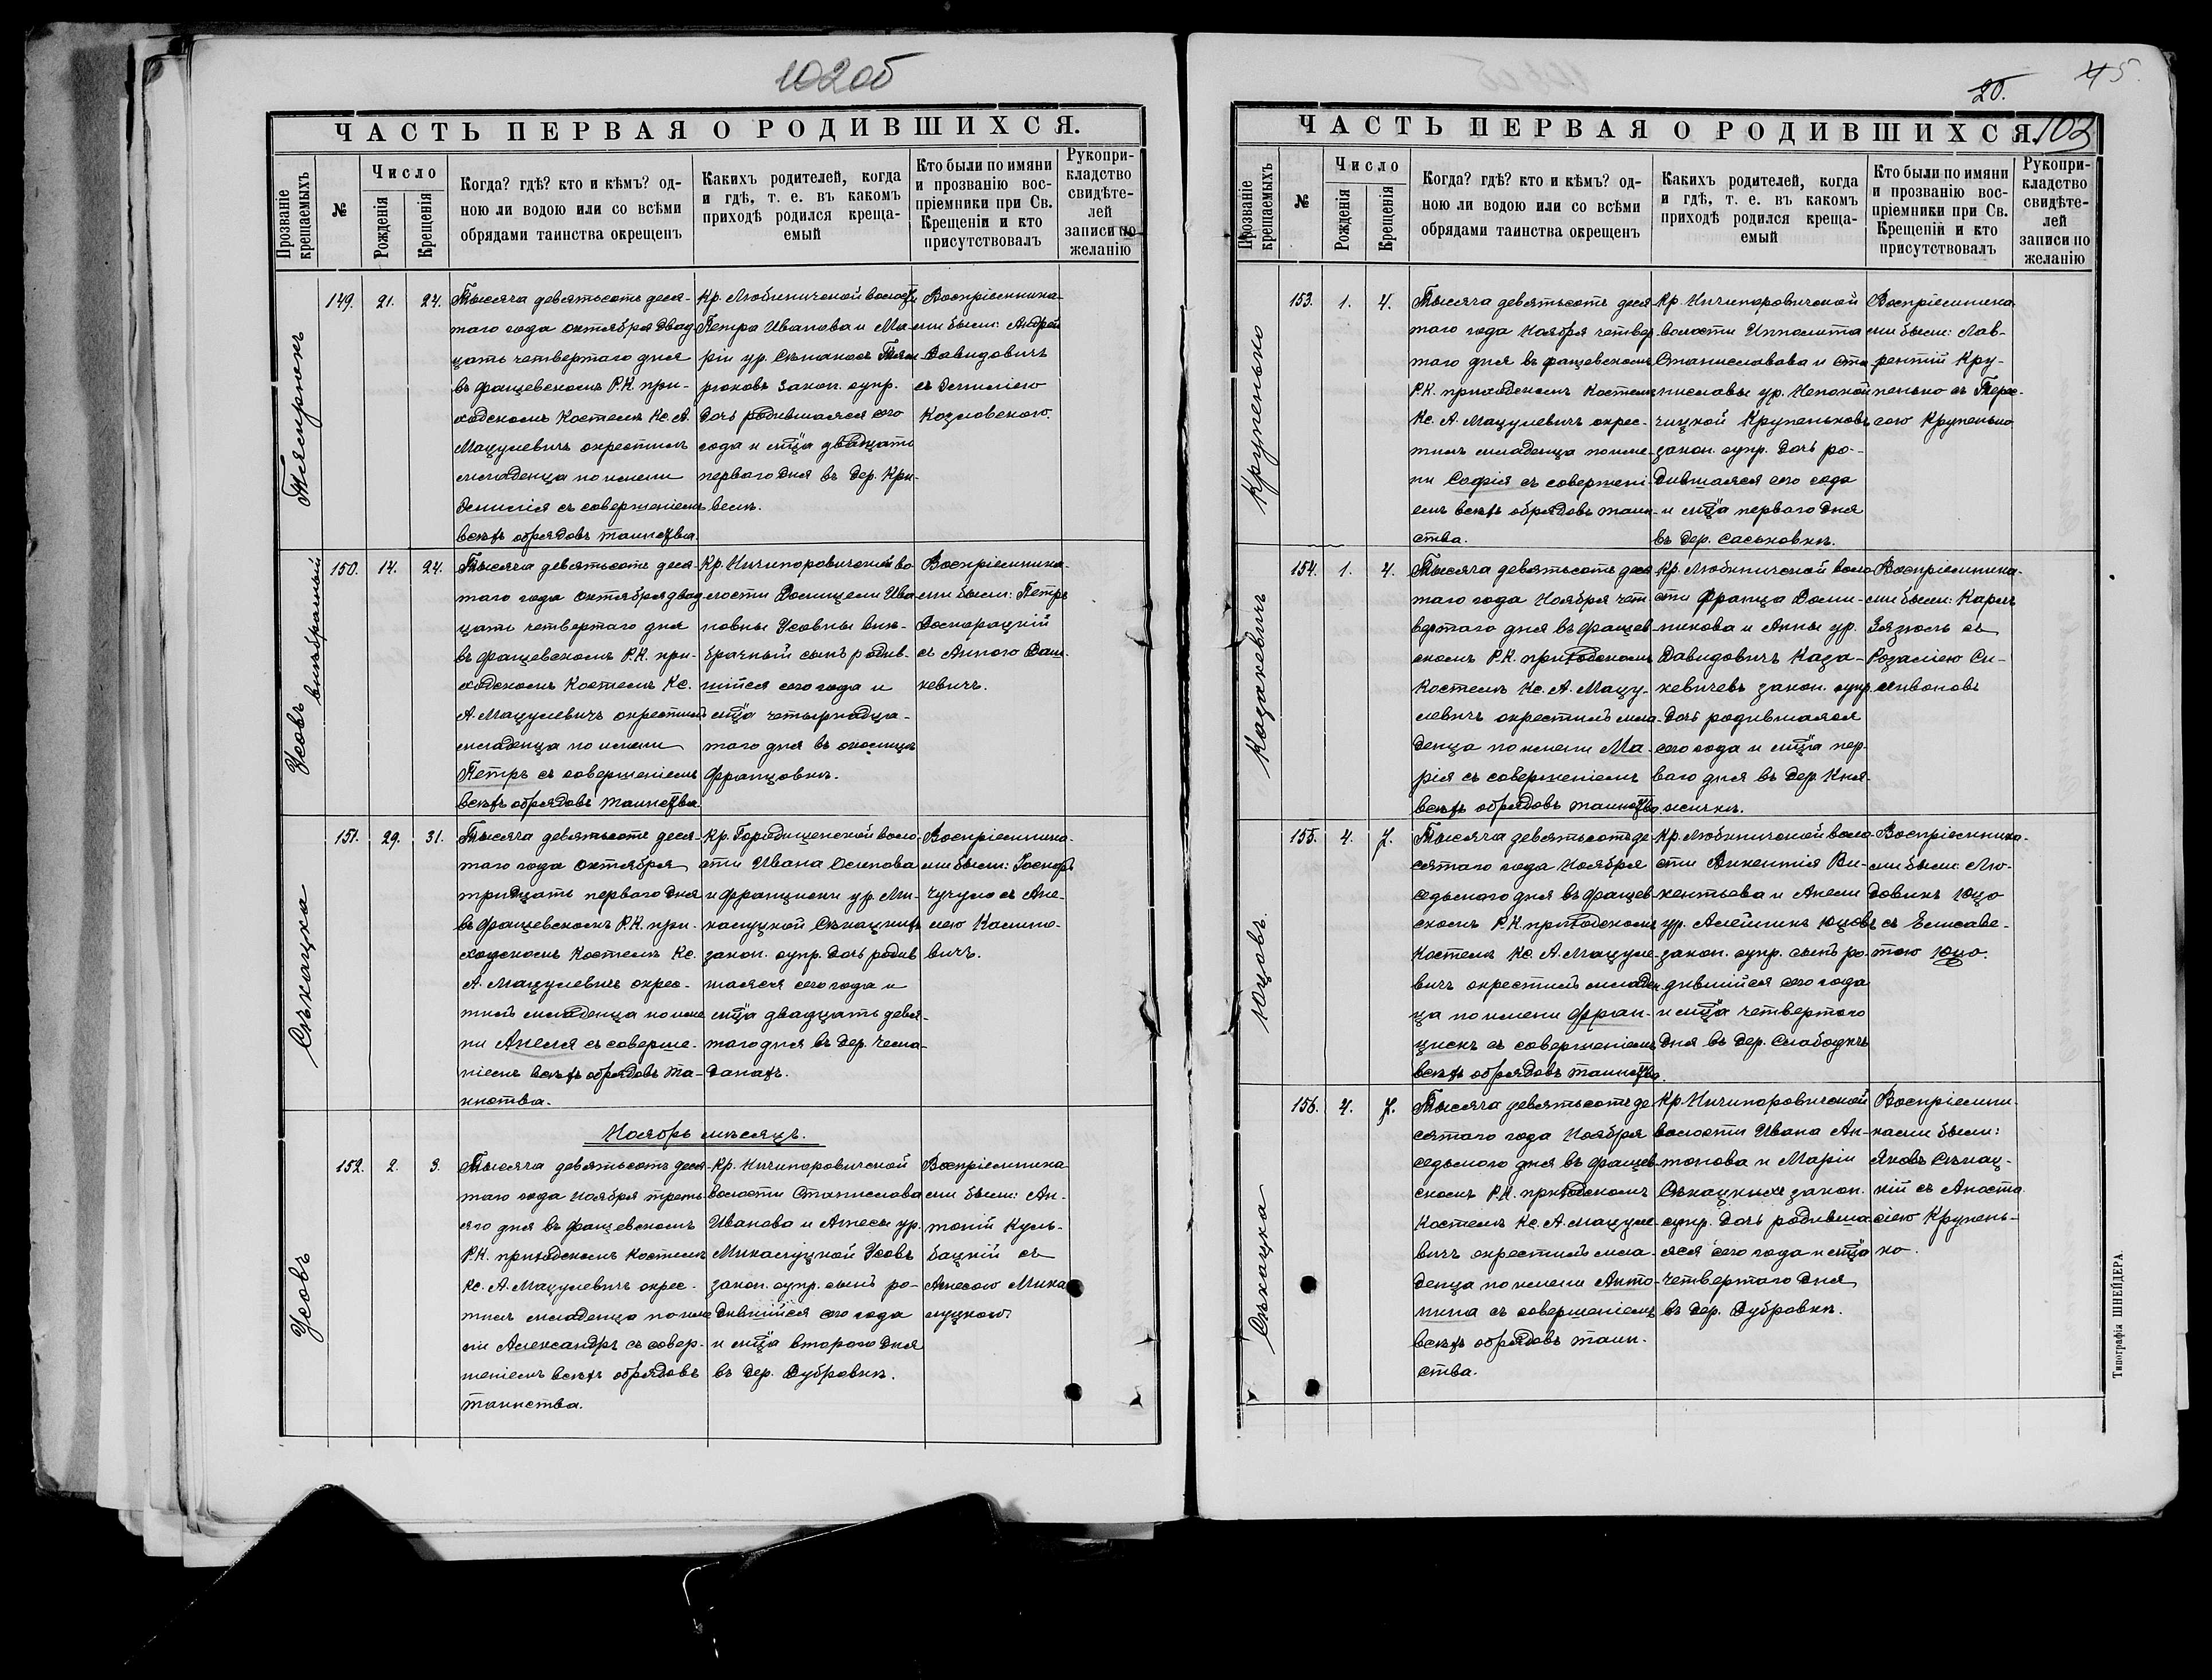 102об
ЧАСТЬ ПЕРВАЯ О РОДИВШИХСЯ.
Прозваніе крещаемыхъ
№
Число
Рожденія
Крещенія
Когда? гдѣ? кто и кѣмъ? од-
ною ли водою или со всѣми
обрядами таинства окрещенъ
Какихъ родителей, когда
и гдѣ, т. е. въ какомъ
приходѣ родился креща-
емый
Кто были по имяни
и прозванію вос-
пріемники при Св.
Крещеніи и кто
присутствовалъ
Рукопри-
кладство
свидѣте-
лей
записи по
желанію
149.
21.
24.
Тысяча девятьсотъ деся-
таго года октября двад
цать четвертаго дня
въ фащевскомъ Р.К. при-
ходскомъ Костелѣ Кс. А.
Мацулевичъ окрестилъ
младенца по имени
съ совершеніемъ
всѣхъ обрядовъ таинства.
Петра Иванова и Ма-
ріи ур.
закон. супр.
дочь родившаяся сего
года и мѣсца двадцать
перваго дня въ дер. Кри-
Воспріемника-
ми были: Андрей
Давидовичъ
съ
Козловскою.
Усовъ внѣбрачный
150.
14.
24.
Тысяча девятьсотъ деся-
таго года октября двад
цать четвертаго дня
въ фащевскомъ Р.К. при-
ходскомъ Костелѣ Кс.
А. Мацулевичъ окрестилъ
младенца по имени
Петръ съ совершеніемъ
всѣхъ обрядовъ таинства.
Кр. Ничипоровичской во
лости Домицели Ива
новны Усовны внѣ-
брачный сынъ родив-
шійся сего года и
мѣсца четырнадца-
таго дня въ околицѣ
Францовкѣ.
Воспріемника-
ми были: Петръ
съ Анною
кевичъ.
151.
29.
31.
Тысяча девятьсотъ деся-
таго года октября
тридцать перваго дня
въ фащевскомъ Р.К. при-
ходскомъ Костелѣ Кс.
А. Мацулевичъ окрес-
тилъ младенца по име
ни Анеля съ соверше-
ніемъ всѣхъ обрядовъ та-
инства.
Кр. Городищенской воло-
сти Ивана Осипова
и Францишки ур. Ми-
калуцкой
закон. супр. дочь родив
шаяся сего года и
мѣсца двадцать девя-
таго дня въ дер. Чема-
данахъ.
Воспріемника-
ми были:
съ Ане-
лею
вичъ.
Ноябрь мѣсяцъ.
Усовъ
152.
2.
3.
Тысяча девятьсотъ деся-
таго года ноября треть
яго дня въ фащевскомъ
Р.К. приходскомъ Костелѣ
Кс. А. Мацулевичъ окрес-
тилъ младенца по име
ни Александръ съ совер-
шеніемъ всѣхъ обрядовъ
таинства.
Кр. Ничипоровичской
волости Станислава
Иванова и Агнесы ур.
Микалуцкой Усовъ
закон. супр. сынъ ро-
дившійся сего года
и мѣсца второго дня
въ дер. Дубровкѣ.
Воспріемника
ми были: Ан-
тоній Куль-
бацкій съ
Агнесою Мика
луцкою.
20.
45.
103
ЧАСТЬ ПЕРВАЯ О РОДИВШИХСЯ.
Прозваніе крещаемыхъ
№
Число
Рожденія
Крещенія
Когда? гдѣ? кто и кѣмъ? од-
ною ли водою или со всѣми
обрядами таинства окрещенъ
Какихъ родителей, когда
и гдѣ, т. е. въ какомъ
приходѣ родился креща-
емый
Кто были по имяни
и прозванію вос-
пріемники при Св.
Крещеніи и кто
присутствовалъ
Рукопри-
кладство
свидѣте-
лей
записи по
желанію
Крупенько
153.
1.
4.
Тысяча девятьсотъ деся
таго года ноября четвер
таго дня въ фащевскомъ
Р.К. приходскомъ Костелѣ
Кс. А. Мацулевичъ окрес-
тилъ младенца по име-
ни Софія съ совершені-
емъ всѣхъ обрядовъ таин-
ства.
Кр. Ничипоровичской
волости Ипполита
Станиславова и Ста
ниславы ур. Непокой
чицкой Крупеньковъ
закон. супр. дочь ро-
дившаяся сего года
и мѣсца перваго дня
въ дер. Саськовкѣ.
Воспріемника
ми были: Лав-
рентій Кру-
пенько съ Терес-
сою Крупенько
Казакевичъ
154.
1.
4.
Тысяча девятьсотъ деся
таго года Ноября чет-
вертаго дня въ фащев-
скомъ Р.К. приходскомъ
Костелѣ Кс. А. Мацу-
левичъ окрестилъ мла-
денца по имени Ма-
рія съ совершеніемъ
всѣхъ обрядовъ таинства.
Франца Доми-
никова и Анны ур.
Давидовичъ Каза-
кевичевъ закон. супр.
дочь родившаяся
сего года и мѣсца пер-
ваго дня въ дер. Кня-
жичкѣ.
Воспріемника-
ми были: Карлъ
Зязюль съ
Розаліею Си-
Юцовъ
155.
4.
7.
Тысяча девятьсотъ де-
сятаго года Ноября
седьмого дня въ фащев-
скомъ Р.К. приходскомъ
Костелѣ Кс. А. Мацуле-
вичъ окрестилъ младен
ца по имени Фран-
цискъ съ совершеніемъ
всѣхъ обрядовъ таинства.
сти Викентія Ви-
кентьева и Анели
ур. Алейникъ Юцовъ
закон. супр. сынъ ро-
дившійся сего года
и мѣсца четвертого
дня въ дер. Слабодкѣ
Воспріемника-
ми были: Лю-
довикъ Юцо
съ Елисаве-
тою Юцо.
156.
4.
7.
Тысяча девятьсотъ де
сятаго года Ноября
седьмого дня въ фащев-
скомъ Р.К. приходскомъ
Костелѣ Кс. А. Мацуле-
вичъ окрестилъ мла-
денца по имени Анто-
нина съ совершеніемъ
всѣхъ обрядовъ таин-
ства.
Кр. Ничипоровичской
волости Ивана Ан-
тонова и Маріи
закон.
супр. дочь родивша
яся сего года и мѣсца
четвертаго дня
въ дер. Дубровкѣ.
Воспріемни-
ками были:
Яковъ
кій съ Анаста
сіею Крупень-
ко.
Типографія ШНЕЙДЕРА.